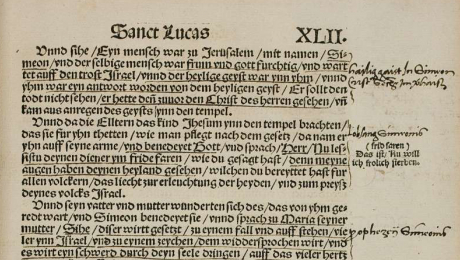 Sanct Lucas XLII.
Vnnd sihe /Eyn mensch war zu Jerusalem /mit namen /Si-
meon /vnd der selbige mensch war frum vnd gott furchtig /vnd wart
tet auff den trost Israel /vnnd der heylige geyst war ynn yhm /vnnd
yhm war eyn antwort worden von dem heyligen geyst /Er sollt den
todt nicht sehen /er hette den zuuor den Christ des herren gesehen /vñ
kam aus anregen des geysts ynn den tempel.
Vnnd da die Elltern das kind Jhesum ynn den tempel brachten /
das sie fur yhn thetten /wie man pflegt nach dem gesetz /da nam er
yhn auff seyne arme /vnd benedeyet Gott /vnd sprach /Herr /Nu les-
sistu deynen diener ynn fride faren /wie du gesagt hast /denn meyne
augen haben deynen heyland gesehen /wilchen du bereyttet hast fur
allen volckern /das liecht zur erleuchtung der heyden /vnd zum preysz
deynes volcks Israel.
Vnnd seyn vatter vnd mutter wunderten sich des /das von yhm ge-
redt wart /vnd Simeon benedeyet sie /vnnd sprach zu Maria seyner
mutter /Sihe /diser wirt gesetzt /zu eynem fall vnd auff stehen /vie
ler ynn Israel /vnd zu eynem zeychen /dem widdersprochen wirt /vnd
es wirt eyn schwerd durch deyn seele dringen /auff das vieler hertz
heilig geist In Simeon
Simeonis
(frid faren)
Das ist /Nu will
ich frolich sterben.
prophezey Simeonis